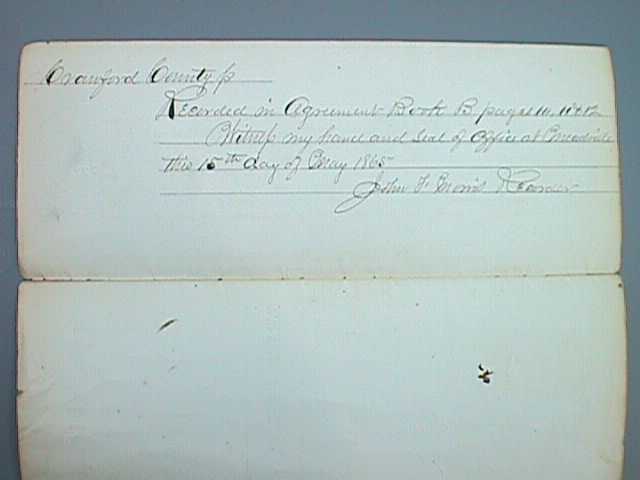 Crawford County ss
Recorded in Agreement Book B. pages 10, 11 & 12
Witness my hand and Seal of Office at Meadville
this 15th day of May 1865
John F Morris Recorder